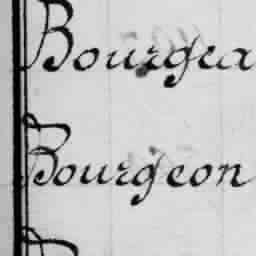 Bourgea
Bourgeon